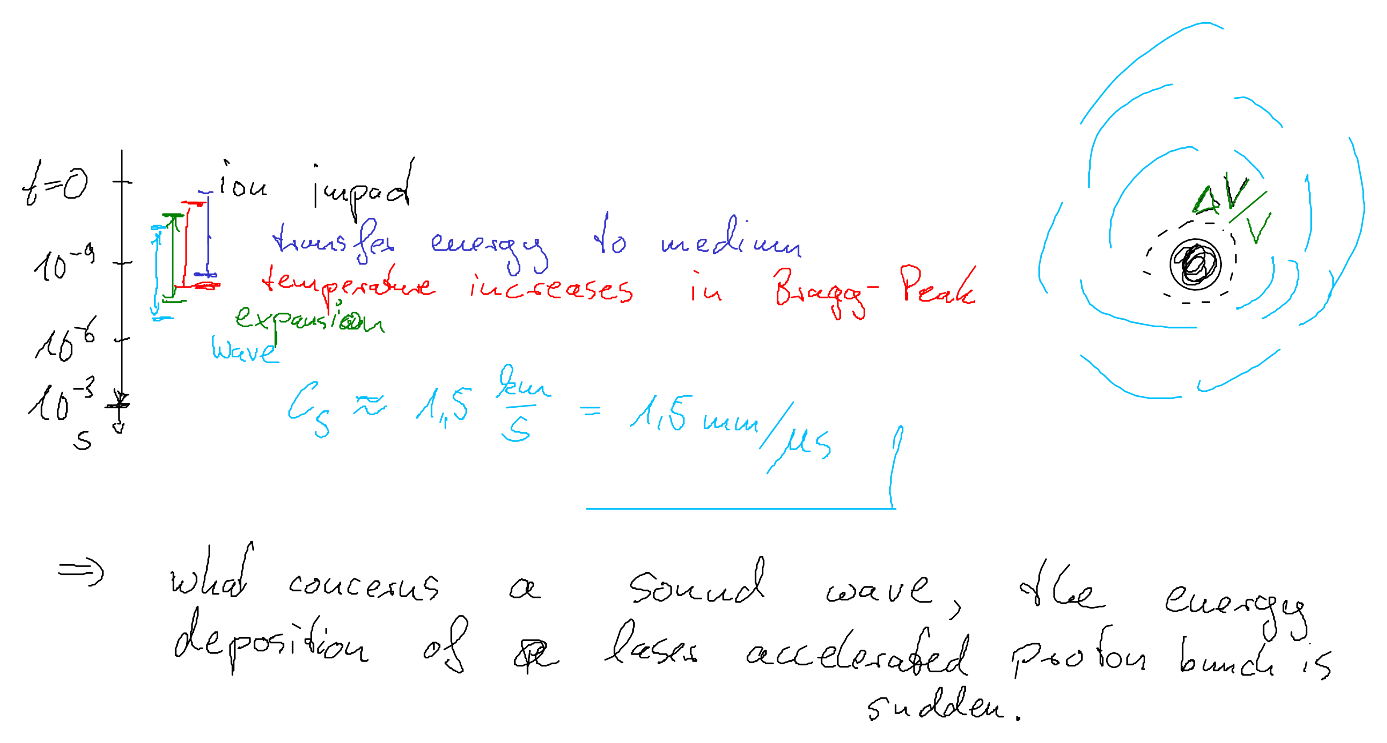 t=0 ion impact
transfer energy to medium
10⁻⁹
temperature increases in Bragg-Peak
expansion
10⁻⁶
wave
10⁻³
s
C_s ≈ 1,5 km/s = 1,5 mm/μs
ΔV/V
⇒ what concerns a sound wave, the energy
deposition of a laser accelerated proton bunch is
sudden.